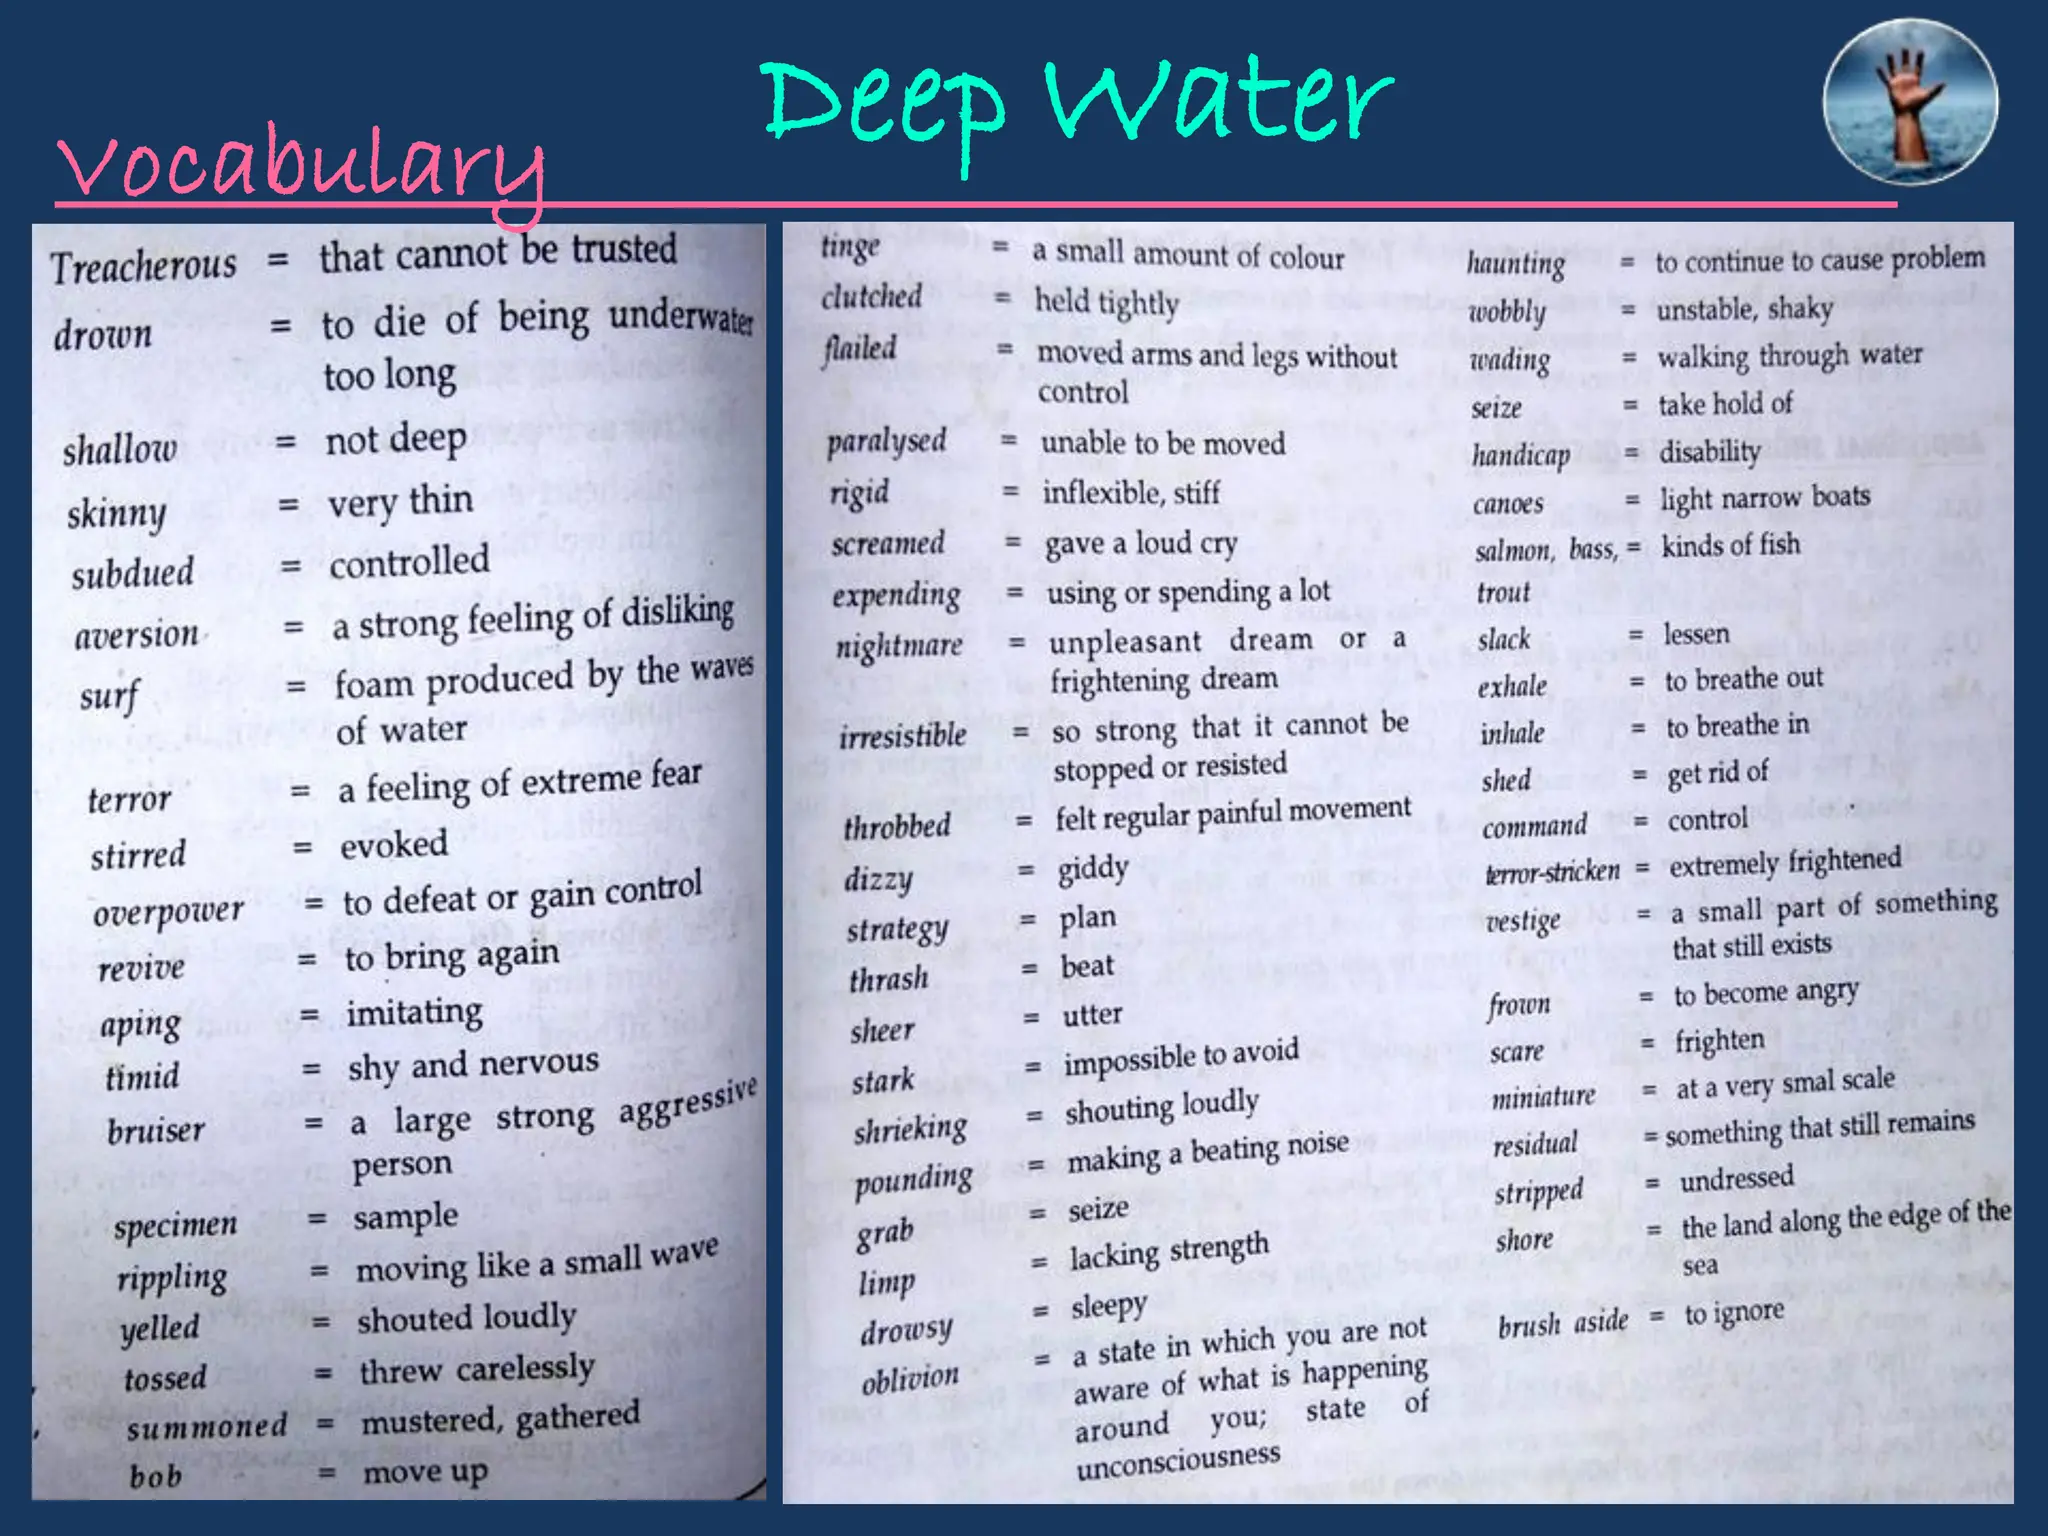 Deep Water
Vocabulary
Treacherous = that cannot be trusted
drown = to die of being underwater
too long
shallow = not deep
skinny = very thin
subdued = controlled
aversion = a strong feeling of disliking
surf = foam produced by the waves
of water
terror = a feeling of extreme fear
stirred = evoked
overpower = to defeat or gain control
revive = to bring again
aping = imitating
timid = shy and nervous
bruiser = a large strong aggressive
person
specimen = sample
rippling = moving like a small wave
yelled = shouted loudly
tossed = threw carelessly
summoned = mustered, gathered
bob = move up
tinge = a small amount of colour
clutched = held tightly
flailed = moved arms and legs without
control
paralysed = unable to be moved
rigid = inflexible, stiff
screamed = gave a loud cry
expending = using or spending a lot
nightmare = unpleasant dream or a
frightening dream
irresistible = so strong that it cannot be
stopped or resisted
throbbed = felt regular painful movement
dizzy = giddy
strategy = plan
thrash = beat
sheer = utter
stark = impossible to avoid
shrieking = shouting loudly
pounding = making a beating noise
grab = seize
limp = lacking strength
drowsy = sleepy
oblivion = a state in which you are not
aware of what is happening
around you; state of
unconsciousness
haunting = to continue to cause problem
wobbly = unstable, shaky
wading = walking through water
seize = take hold of
handicap = disability
canoes = light narrow boats
salmon, bass, = kinds of fish
trout
slack = lessen
exhale = to breathe out
inhale = to breathe in
shed = get rid of
command = control
terror-stricken = extremely frightened
vestige = a small part of something
that still exists
frown = to become angry
scare = frighten
miniature = at a very smal scale
residual = something that still remains
stripped = undressed
shore = the land along the edge of the
sea
brush aside = to ignore